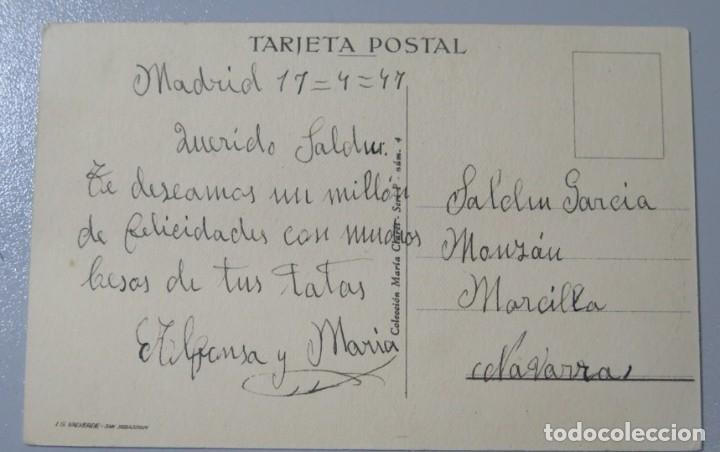 TARJETA POSTAL
Madrid 17=4=47
Querido Saldu.
Te deseamos un millón
de felicidades con muchos
besos de tus tatas
Alfonsa y María
Colección María Claret - Serie P - núm. 4
Saldu Garcia
Monzán
Marcilla
(Navarra)
I. G. VALVERDE - SAN SEBASTIAN
todocoleccion